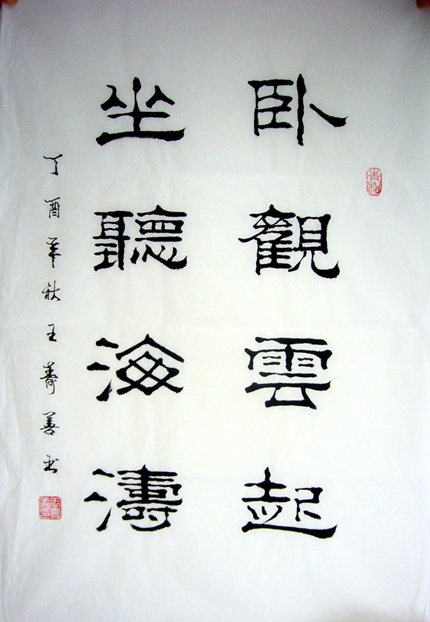 卧觀雲起
坐聽海濤
丁酉年秋王壽善书